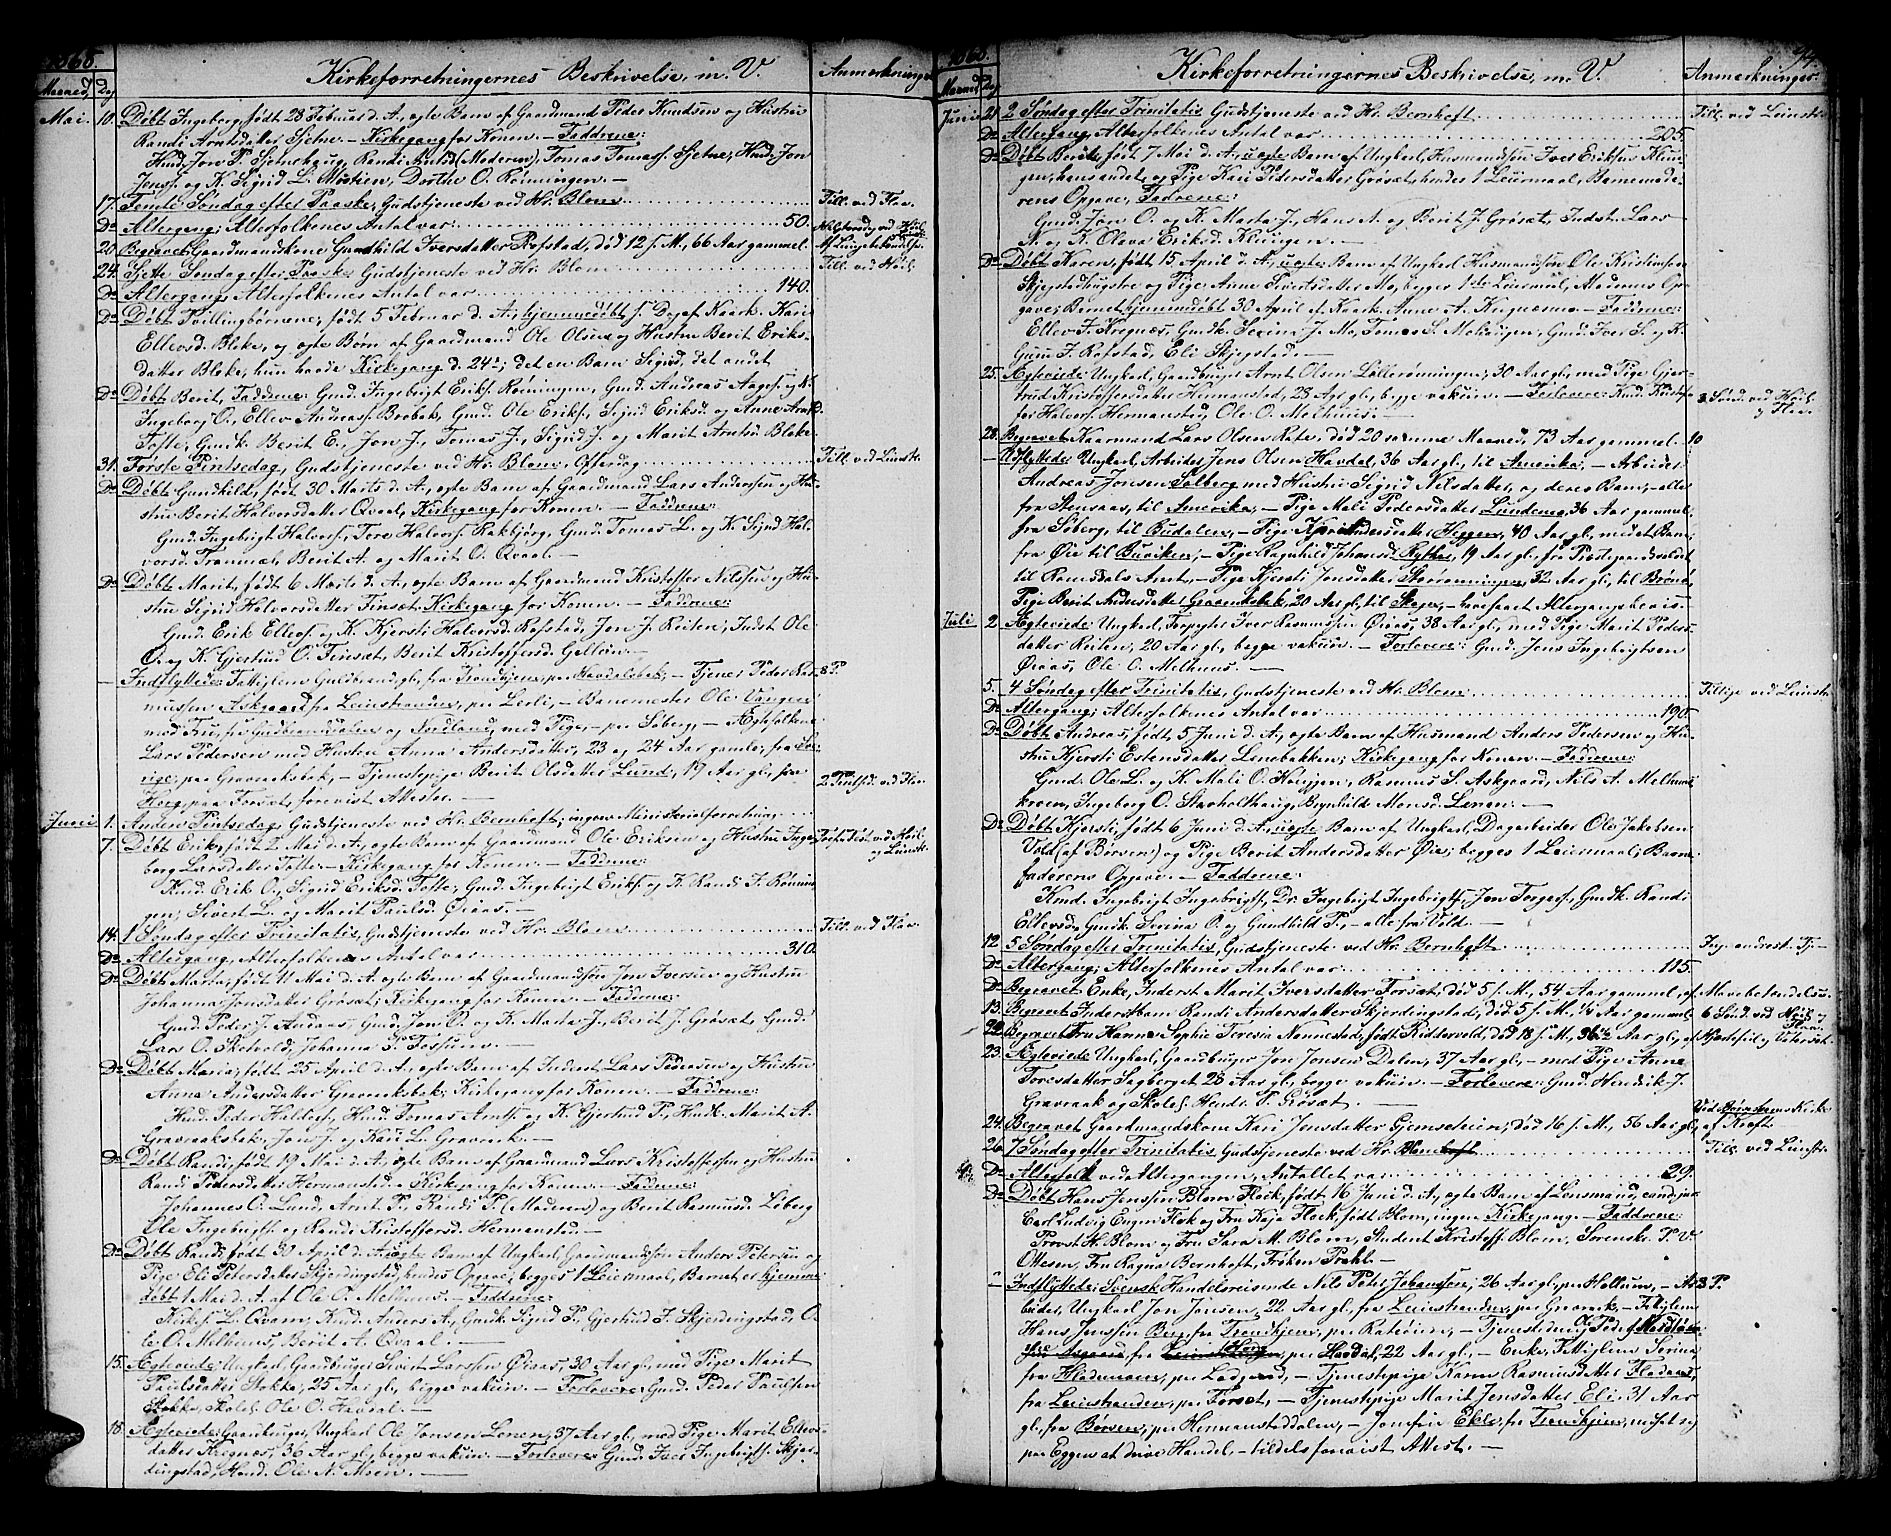 1868.
Maaned, Dag
Kirkeforretningernes Beskrivelse, m. V.
Anmerkninger
Mai. 10. Døbt Ingeborg, født 28 Februar d. A., egte Barn af Gaardmand Peder Knudsen og Hustru
Randi Arntsdatter Sjetne. – Kirkegang for Konen. – Faddrene:
Jon P. Sjetnehaug, Randi (Moderen), Tomas Tomass. Sjetne, Jon
Jons. og K. Sigrid L. Dorthe O. Rønningen. –
17. Femte Søndag efter Paaske, Gudstjeneste ved Hr. Blom. Till. ved Flaa.
Do Altergang; Alterfolkenes Antal var: 50.
20. Begravet Gaardmandskone Gundhild Iversdatter Rofstad, død 12 s. M., 66 Aar gammel.
24. Sjette Søndag efter Paaske Gudstjeneste ved Hr. Blom Till. ved Høil.
Do Altergang, Alterfolkenes Antal var 140.
Do Døbt Tvillingbørnene, født 5 Februar d. A., hjemmedøbt s. Dag af Kaark. Kari
Ellevsd. Bleke, og egte Børn af Gaardmand Ole Olsen og Hustru Berit Eriks-
datter Bleke, hun havde Kirkegang d. 24; det en Barn Sigrid, det andet
Do Døbt Berit, Faddrene: Gmd. Ingebrigt Eriks. Rønningen, Gmd. Andreas Aages. og K.
Ingeborg O., Ellev Andreass. Brobak, Gmd. Ole Eriks., Sigrid Eriksd. og Anne Arntsd.
Tofte; Gmdk. Berit E., Jon J., Tomas J., Sigrid J. og Marit Arntsd. Bleke
31. Første Pintsedag, Gudstjeneste ved Hr. Blom, Offerdag Till. ved Leinstr.
Do Døbt Gundhild, født 30 Marts d. A., egte Barn af Gaardmand Lars Andersen og Hu-
stru Berit Halvorsdatter Qvaal, Kirkegang for Konen. – Faddrene:
Gmd. Ingebrigt Halvors., Tore Halvors. Rakbjørg, Gmd. Tomas L. og K. Sigrid Hal-
vorsd. Tranmæl, Berit A. og Marit O. Qvaal. –
Do Døbt Marit, født 6 Marts d. A., egte Barn af Gaardmand Kristoffer Nilssen og Hu-
stru Sigrid Halvorsdatter Finsæt, Kirkegang for Konen. – Faddrene:
Gmd. Erik Ellevs. og K. Kjersti Halvorsd. Rofstad, Jon J. Reiten, Indst. Ole
O. og K. Gjertrud O. Finsæt, Berit Kristoffersd. Gellein –
– Indflyttede: Fattiglem Guldbrand, gl., fra Trondhjem, per Havdalsbak, – Tjener Peder Ras- 8 P.
mussen Askgaard fra Leinstranden, per Lerli, – Banemester Ole Vongen
med Fru, fra Gudbrandsdalen og Nordland, med Pige, – per Søberg, – Ægtefolkene
Lars Pedersen med Hustru Anna Andersdatter, 23 og 24 Aar gamle, fra Sve-
rige, per Gravraksbak, – Tjenestepige Berit Olsdatter Lund, 19 Aar gl., fra
Horg, paa Forsæt, forevist Attester. –
2 Pintsd. ved Flaa.
Juni 1. Anden Pintsedag, Gudstjeneste ved Hr. Bernhoft, ingen Ministerialforretning
7. Døbt Erik, født 2 Mai d. A., egte Barn af Gaardmand Ole Eriksen og Hustru Inge-
borg Larsdatter Tofte. – Kirkegang for Konen. – Faddrene:
Trefn. Fest ved Høil. og Leinstr.
Gmd. Erik O., Sigrid Eriksd. Tofte, Gmd. Ingebrigt Eriks. og K. Randi J. Rønnin-
gen; Sivert L. og Marit Paulsd. Øiaas. –
14. 1 Søndag efter Trinitatis, Gudstjeneste ved Hr. Blom Till. ved Flaa.
Do Altergang, Alterfolkenes Antal var 310.
Do Døbt Maria, født 11 Mai d. A., egte Barn af Gaardmandssøn Jon Iversen og Hustru
Johanna Jonsdatter Grøsæt, Kirkegang for Konen. – Faddrene:
Gmd. Peder J. Gmd. Jon O. og K. Marta J., Berit J. Grøsæt, Gmd.
Lars O. Sketvold, Johanna P. –
Do Døbt Maria, født 25 April d. A., egte Barn af Inderst Lars Pedersen og Hustru
Anna Andersdatter Gravraksbak, Kirkegang for Konen. – Faddrene:
Hmd. Peder Hmd. Tomas Arnts. og K. Gjertrud P., Marit A.
Gravraaksbak, Jon J. og Kari L. Gravrak. –
Do Døbt Randi, født 19 Mai d. A., egte Barn af Gaardmand Lars Kristoffersen og Hustru
Randi Pedersdatter Hermanstad. – Kirkegang for Konen. – Faddrene:
Johannes O. Lund, Arnt P., Randi P. (Moderen) og Berit Rasmusd. Løberg
Ole Ingebrigts. og Randi Kristoffersd. Hermanstad. –
Do Døbt Randi, født 30 April d. A., uegte Barn af Ungkarl, Gaardmandssøn Anders Petersen og
Pige Eli Petersdatter Skjerdingstad, hendes Opgave; begges 1 Leiermaal, Barnet er hjemme-
døbt 1 Mai d. A. af Ole O. Melhuus. – Faddrene:
L. Qvam, Gmd. Anders A., Gmdk. Sigrid P., Gjertrud J. Skjerdingstad, O-
le O. Melhuus, Berit A. Qvaal. –
15. Ægteviede: Ungkarl, Gaardbruger Sivert Larssen Øiaas, 30 Aar gl., med Pige Marit
Paulsdatter Stokke, 25 Aar gl., begge vakcin. – Forlovere: Gmd. Peder Paulsen
Stokke, Skolel. Ole O. Havdal. –
18. Ægteviede: Gaardbruger, Ungkarl Ole Jonsen Lenen, 37 Aar gl., med Pige Marit Ellevs-
datter Kregnæs, 36 Aar gl., begge vakcin. – Forlovere: Gmd. Iver Ingebrigts. Skjer-
dingstad, Hmd. Ole A. Moen. –
1868.
Maaned Dag
Kirkeforretningernes Beskrivelse, m. V.
Anmerkninger.
94.
Juni 21. 2 Søndag efter Trinitatis Gudstjeneste ved Hr. Bernhoft Till. ved Leinstr.
Do Altergang, Alterfolkenes Antal var 205.
Do Døbt Berit, født 7 Mai d. A., uegte Barn af Ungkarl, Husmandssøn Iver Eriksen Kluin-
gen, hans andet, og Pige Kari Pedersdatter Grøsæt, hendes 1 Leiermaal, Barnemode-
rens Opgave, Faddrene:
Gmd. Jon O. og K. Marta J., Hans A. og Berit J. Grøsæt, Indst. Lars
A. og K. Oleva Eriksd. Kluingen. –
Do Døbt Karen, født 15 April d. A., uegte Barn af Ungkarl Husmandssøn Ole Kristensen
Skjefstadhugstre og Pige Anne Sivertsdatter Mo, begges 1ste Leiermaal, Moderens Op-
gave; Barnet hjemmedøbt 30 April af Kaark. Anne A. Kregnæsmo – Faddrene:
Ellev J. Kregnæs, Gmdk. Serina J. Mo, Tomas S. Gmd. Iver S. og K.
Guru J. Rofstad, Eli Skjefstad. –
25. Ægteviede: Ungkarl, Gaardbruger Arnt Olsen Løllerønningen, 30 Aar gl., med Pige Gjer-
trud Kristoffersdatter Hermanstad, 23 Aar gl., begge vakcin. – Forlovere: Gmd. Kristof-
fer Halvors. Hermanstad, Ole O. Melhuus. –
3 Sønd. ved Høil. og Flaa.
28. Begravet Kaarmand Lars Olsen Rate, død 20 samme Maaned, 73 Aar gammel. 10
– Udflyttede: Ungkarl, Arbeider Jens Olsen Havdal, 36 Aar gl., til Amerika, – Arbeider
Andreas Jonsen Solberg med Hustru Sigrid Nilsdatter, og deres Barn, – alle
fra Stensaas, til Amerika, – Pige Mali Pedersdatter Lundemo, 36 Aar gammel,
fra Søberg, til Budalen, – Pige Kari Andersdatter Heggen, 40 Aar gl., med et Barn,
fra Øie til Buviken, – Pige Ragnhild Johansd. Rytter, 19 Aar gl., fra Præstegaardvaldet
til Romsdals Amt, – Pige Kjersti Jonsdatter Storrønningen, 32 Aar gl., til Brønø,
Pige Berit Andersdatter Gravraksbak, 20 Aar gl., til Skogn, – have faaet Altergangsbeviis.
Juli 2. Ægteviede: Ungkarl, Forpagter Iver Rasmussen Øiaas, 38 Aar gl., med Pige Marit Peders-
datter Reiten, 20 Aar gl., begge vakcin. – Forlovere: Gmd. Jens Ingebrigtsen
Øiaas, Ole O. Melhuus. –
5. 4 Søndag efter Trinitatis, Gudstjeneste ved Hr. Blom Tillige ved Leinstr.
Do Altergang; Alterfolkenes Antal var 190.
Do Døbt Andreas, født 5 Juni d. A., egte Barn af Husmand Anders Pedersen og Hu-
stru Kjersti Estensdatter Lenebakken; Kirkegang for Konen. – Faddrene:
Gmd. Ole L. og K. Mali O. Høiggen, Rasmus S. Askgaard, Nils A. Melhuus-
kroen, Ingeborg O. Stavholthaug, Brynhilde Monsd. Lenen. –
Do Døbt Kjersti, født 6 Juni d. A., uegte Barn af Ungkarl, Dagarbeider Ole Jakobsen
Vold (af Børsen) og Pige Berit Andersdatter Øie; begges 1 Leiermaal; Barne-
faderens Opgave. – Faddrene:
Gmd. Ingebrigt Ingebrigts., Dr. Ingebrigt Ingebrigts., Jon Torgers., Gmdk. Randi
Ellevsd., Gmdk. Serina O. og Gundhild P., – alle fra Vold. –
12. 5 Søndag efter Trinitatis, Gudstjeneste ved Hr. Bernhoft Ing. andrest. Tj. –
Do Altergang; Alterfolkenes Antal var 115.
Do Begravet Enke, Inderst Marit Iversdatter Forsæt, død 5 s. M., 54 Aar gammel, af Mavebetændelse.
13. Begravet Inderstbarn Randi Andersdatter Skjerdingstad, død 5 s. M., 1/4 Aar gammel 6 Sønd. ved Høil. og Flaa.
22. Begravet Fru Hanna Sophie Teresia Nannestad, født Riddervold, død 18 s. M., 36 1/2 Aar gl., af Hjertefeil og Vatersot.
23. Ægteviede Ungkarl, Gaardbruger Jon Jonsen Dalen, 37 Aar gl., – med Pige Anne
Toresdatter Sagberget 28 Aar gl., begge vakcin. – Forlovere: Gmd. Hendrik J.
Gravraak og Skolel. Hendr. P. Grøsæt. –
24. Begravet Gaardmandskone Kari Jensdatter Gjemsesleien; død 16 s. M., 56 Aar gl., af Kræft
26. 7 Søndag efter Trinitatis Gudstjeneste ved Hr. Blom Till. ved Leinstr.
Do Alterfolk ved Altergangen, Antallet var 29.
Do Døbt Hans Jenssen Blom Flock, født 16 Juni d. A., egte Barn af Lensmand, cand. jur.
Carl Ludvig Eugen Flock og Fru Kaja Flock, født Blom, ingen Kirkegang. – Faddrene:
Provst H. Blom og Fru Sara M. Blom, Student Kristoff. Blom, Sorensk. P. V.
Ottesen, Fru Ragna Bernhoft, Frøken Prahl –
– Indflyttede: Svensk Handelsreisende Nils Peter Johanssen, 26 Aar gl., per Hollum, – Ar- 3 P.
beider, Ungkarl Jon Jonsen, 22 Aar gl., fra Leinstranden, per Gravrak, – Fattiglem
Hans Jenssen Berg, fra Trondhjem, per Raterøien, – Tjenestedreng Ole Peders.
fra Horg, per Havdal, 22 Aar gl., – Enke, Fattiglem Serina
fra Hladamoen, per Ladgard, – Tjenestepige Karen Rasmusdatter Flodaas,
fra Leinstranden, per Forsæt, – Tjenestepige Marit Jensdatter Eli, 31 Aar
gl., fra Børsen, per Hermanstaddalen, – Jomfru Ekle, fra Trondhjem, nedsat sig
per Eggen at drive Handel, – tildels forevist Attest. –